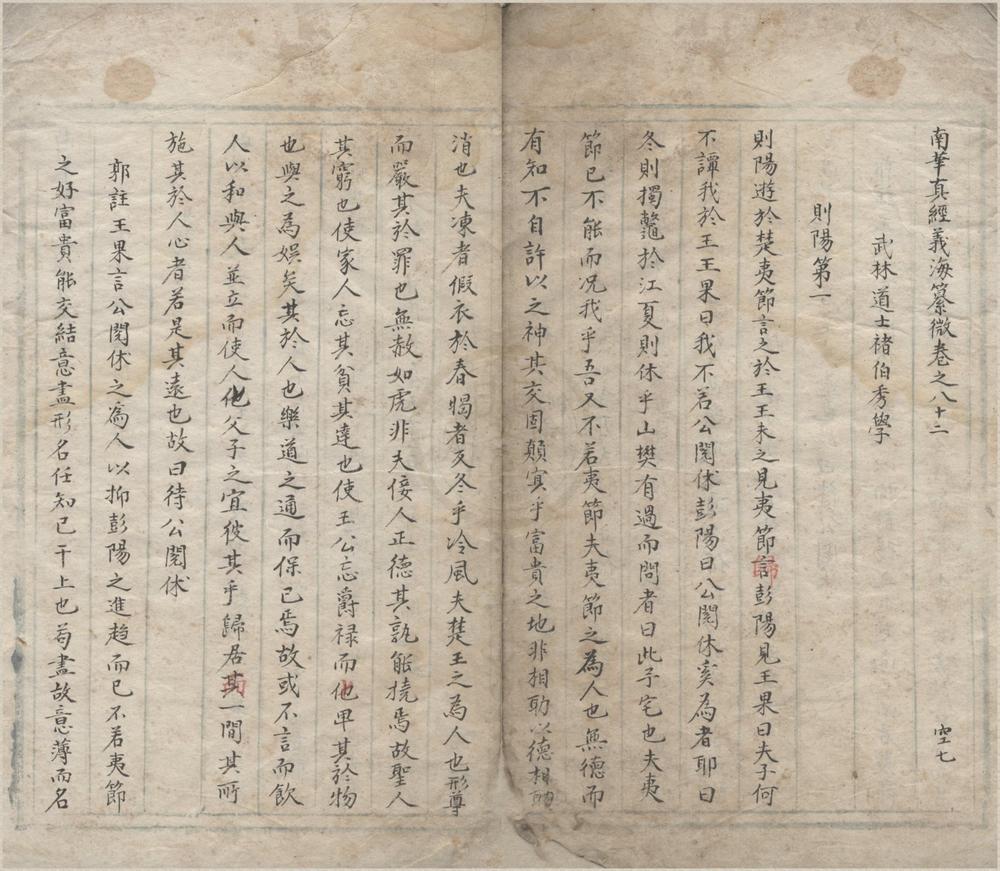 南華真經義海纂微卷之八十二　空七
武林道士褚伯秀學
則陽第一
則陽遊於楚夷節言之於王王未之見夷節歸彭陽見王果曰夫子何
不譚我於王王果曰我不若公閱休彭陽曰公閱休奚為者耶曰
冬則擉鼈於江夏則休乎山樊有過而問者曰此予宅也夫夷
節已不能而况我乎吾又不若夷節夫夷節之為人也無德而
有知不自許以之神其交固顛冥乎富貴之地非相助以德相助
消也夫凍者假衣於春暍者反冬乎冷風夫楚王之為人也形尊
而嚴其於罪也無赦如虎非夫佞人正德其孰能撓焉故聖人
其窮也使家人忘其貧其達也使王公忘爵祿而化卑其於物
也與之為娛矣其於人也樂道之通而保已焉故或不言而飲
人以和與人並立而使人化父子之宜彼其乎歸居而一間其所
施其於人心者若是其遠也故曰待公閱休
郭註王果言公閱休之為人以抑彭陽之進趋而已不若夷節
之好富貴能交結意盡形名任知已干上也苟盡故意薄而名